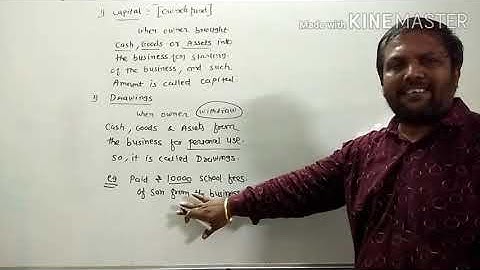 1) Capital = [Owner's fund]
Made with KINEMASTER
when owner brought
Cash, Goods or Assets into
the business for starting
of the business, and such
Amount is called capital.
2) Drawings
when owner withdraw
Cash, Goods & Assets from
the business for personal use.
so, it is called Drawings.
eg Paid ₹ 10000 school fees
of son from the business